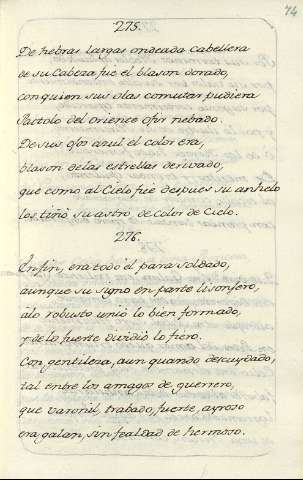 74
275.
De hebras largas ondeada cabellera
de su Cabeza fue el blason dorado,
con quien sus olas comutar pudiera
Pactolo del oriente ofir nebado.
De sus ojos azul el color era,
blason de las estrellas derivado,
que como al Cielo fue despues su anhelo
los tiñó su astro, de color de Cielo.
276.
En fin, era todo él para soldado,
aunque su signo en parte lisonjero,
a lo robusto unió lo bien formado,
y de lo fuerte dividió lo fiero.
Con gentileza, aun quando descuydado,
tal entre los amagos de guerrero,
que varonil, trabado, fuerte, ayroso
era galan, sin fealdad de hermoso.